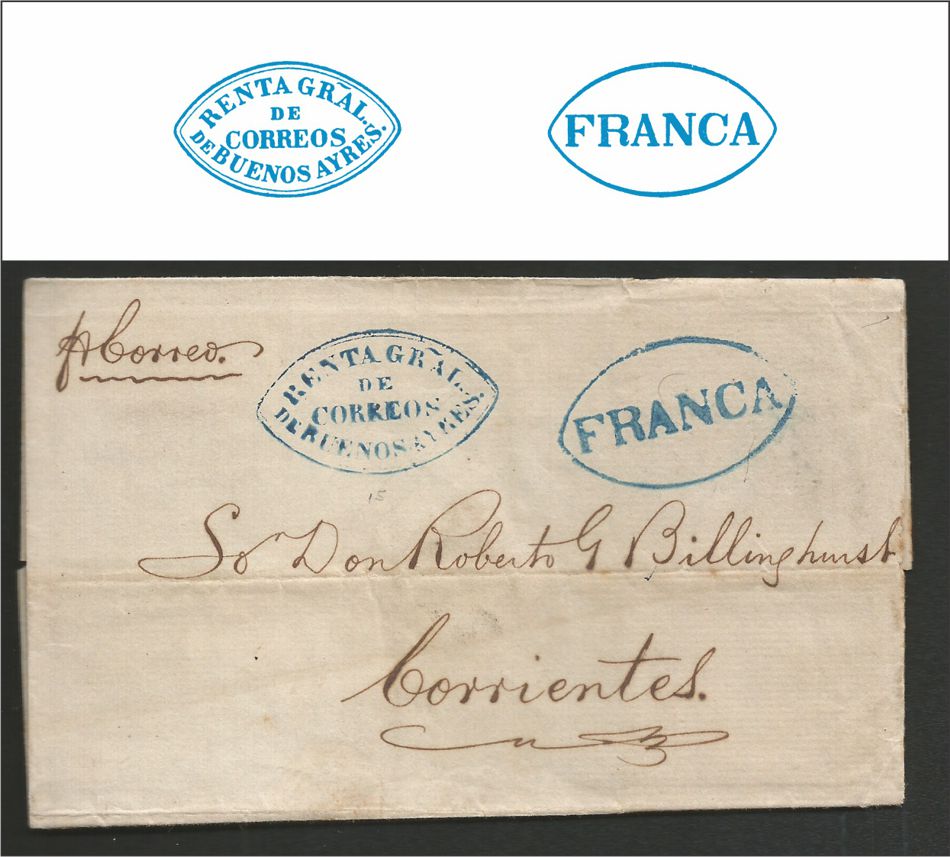 RENTA GRAL.
DE
CORREOS
DE BUENOS AYRES.
FRANCA
pr Correo.
RENTA GRAL.
DE
CORREOS
DE BUENOS AYRES.
FRANCA
15
Sor Don Roberto G Billinghurst
Corrientes.